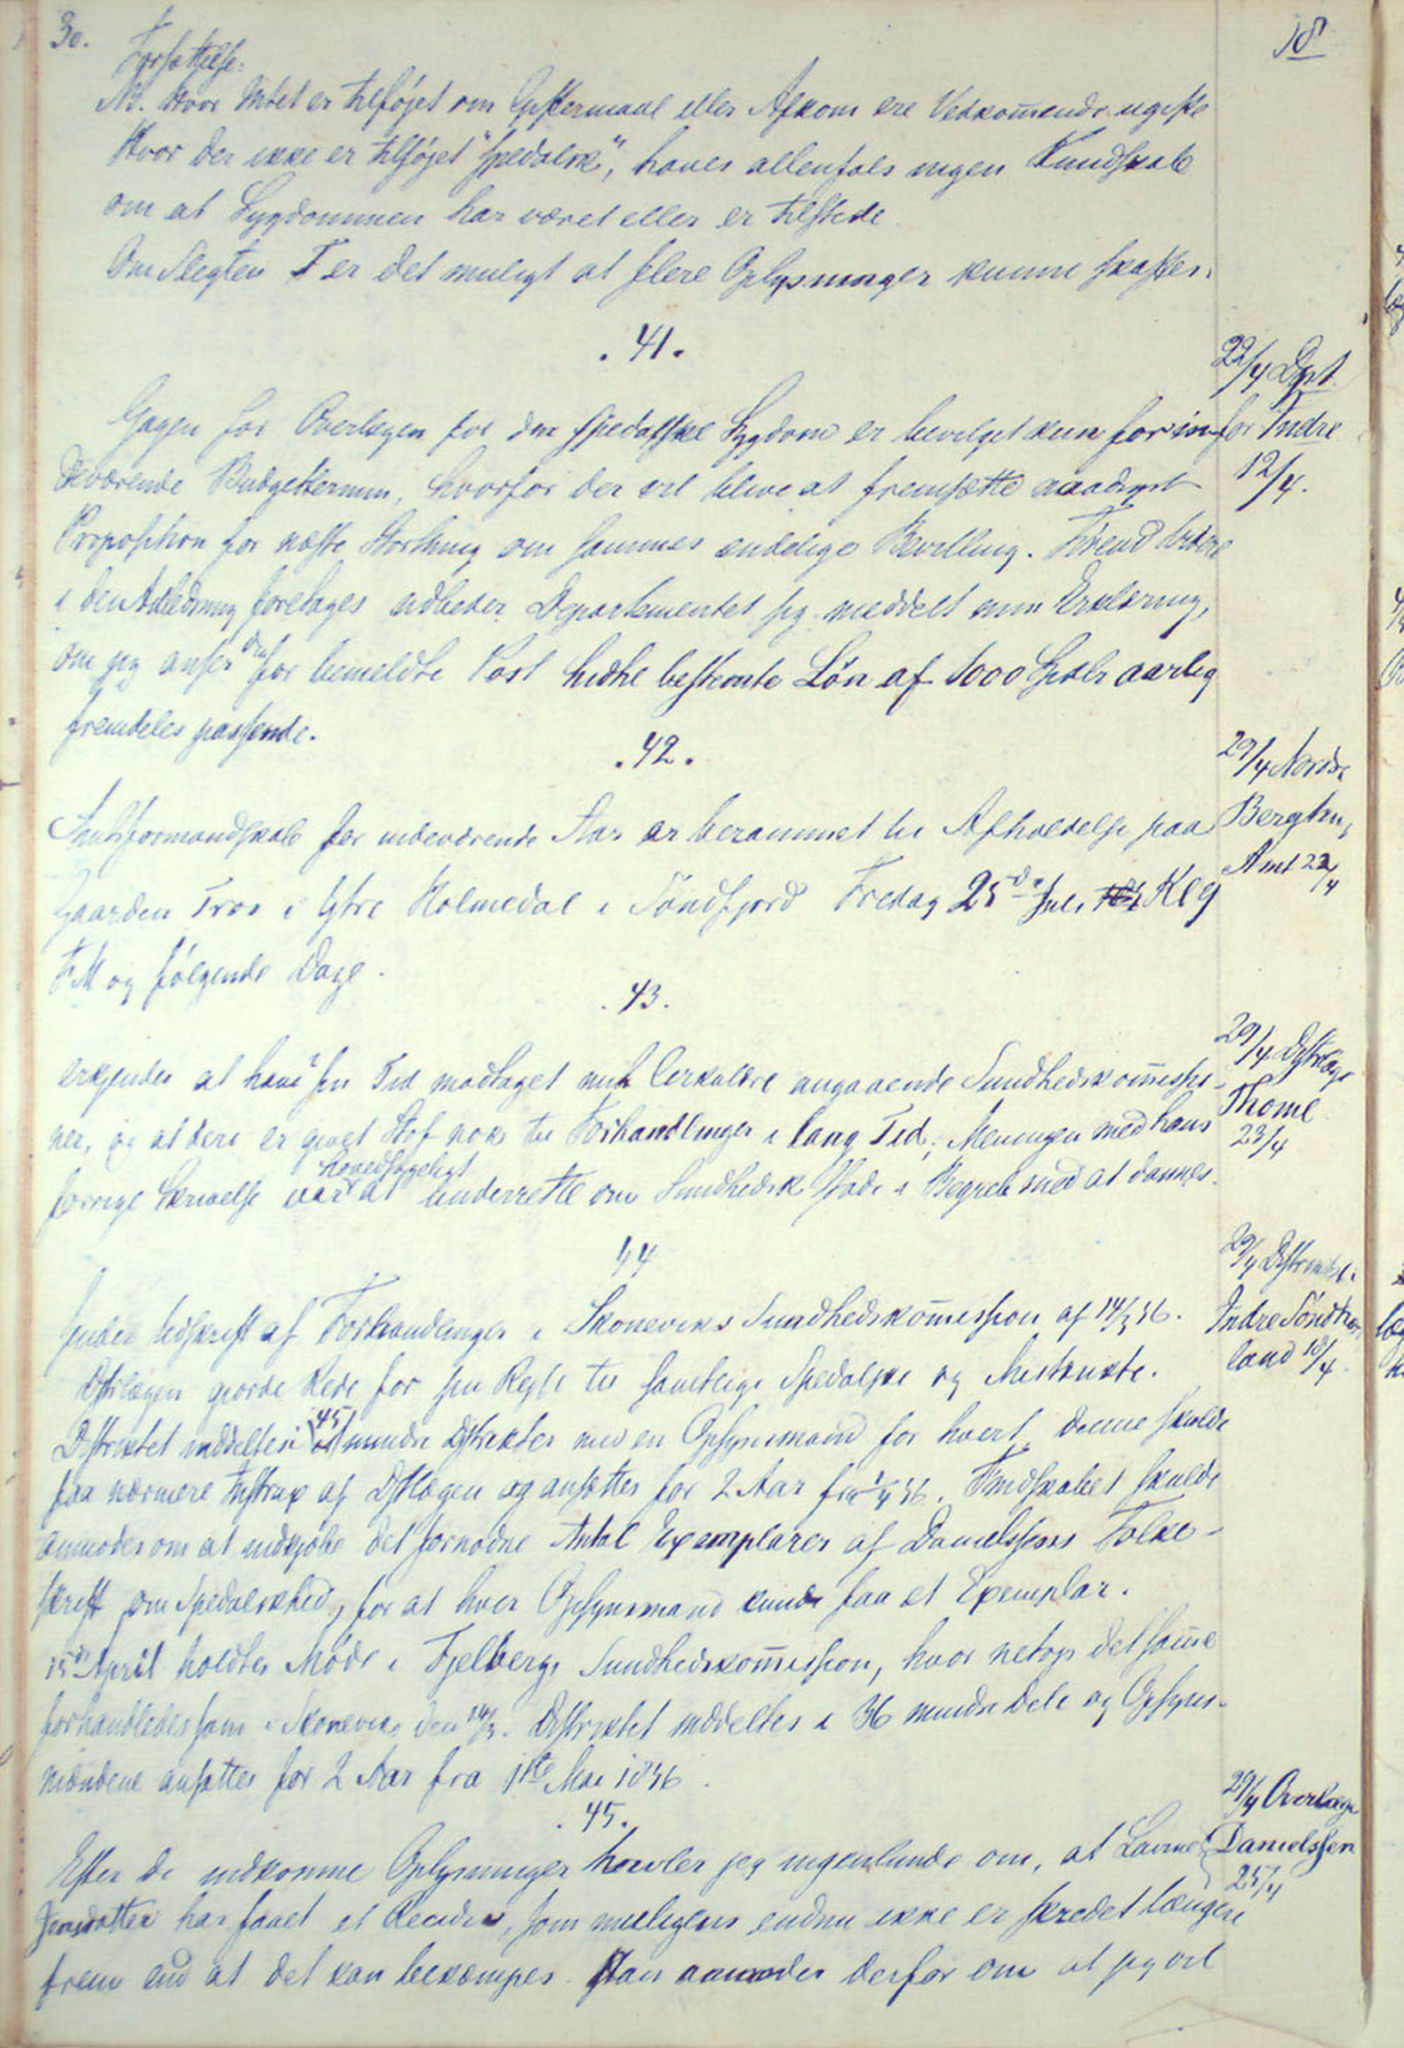 30.
18
Forsættelse.
NB. Hvor Intet er tilføjet om Giftermaal eller Afkom ere Vedkommende ugifte
Hvor der ikke er tilføjet "spedalsk", haves allenfals ingen Kundskab
om at Sygdommen har været eller er tilstede.
Om Slegten I er det muligt at flere Oplysninger kunne skaffes.
.41.
22/4 Dpt.
for Indre
12/4.
Gagen for Overlægen for den spedalske Sygdom er bevilget kun for in-
deværende Budgettermin, hvorfor der vil blive at fremsætte
Proposition for næste Storthing om sammes endelige Bevilling. Førend videre
i den Anledning foretages udbeder Departementet sig meddelt min Erklæring,
om jeg anser den for bemeldte Post hidtil bestemte Løn af 1000 Spdlr aarlig
fremdeles passende.
.42.
29/4 Nordre
Bergenhus
Amt 22/4
Amtsformandskab for indeværende Aar er berammet til Afholdelse paa
Gaarden Træe i Ytre Holmedal i Søndfjord Fredag 25de Juli Kl 9
FM og følgende Dage.
.43.
29/4 Distrlæge
Thome
23/4
erkjender at have i sin Tid modtaget mit Cirkulære angaaende Sundhedskommissio-
ner, og at deri er givet Stof nok til Forhandlinger i lang Tid; Meningen med hans
forrige Skrivelse var hovedsageligt at underrette om Sundhedsk stode i Begreb med at dannes.
44
29/4 Distriktsl.
Indre Søndhor-
land 18/4.
sender Udskrift af Forhandlinger i Skoneviks Sundhedskommission af 14/3 56.
Distrlægen gjorde Rede for sin Rejse til samtlige Spedalske og Mistænkte.
Distriktet inddeltes i 45 mindre Distrikter med en Opsynsmand for hvert, denne skulde
faa nærmere Instrux af Distlægen og ansættes for 2 Aar fra 1/4 56. Fmdskabet skulde
anmodes om at indkjøbe det fornødne Antal Exemplarer af Danielssens Folke-
skrift om Spedalskhed, for at hver Opsynsmand kunde faa et Exemplar.
15de April holdtes Møde i Fjelbergs Sundhedskommission, hvor netop det samme
forhandledes som i Skonevik den 14/3. Distriktet inddeltes i 36 mindre Dele og Opsyns-
mændene ansattes for 2 Aar fra 1ste Mai 1856.
.45.
29/4 Overlæge
Danielssen
25/4
Efter de indkomne Oplysninger tvivler jeg ingenlunde om, at
Jensdatter har faaet et Recidiv, som muligens endnu ikke er skredet længere
frem end at det kan bekæmpes. Han anmoder derfor om at jeg vil